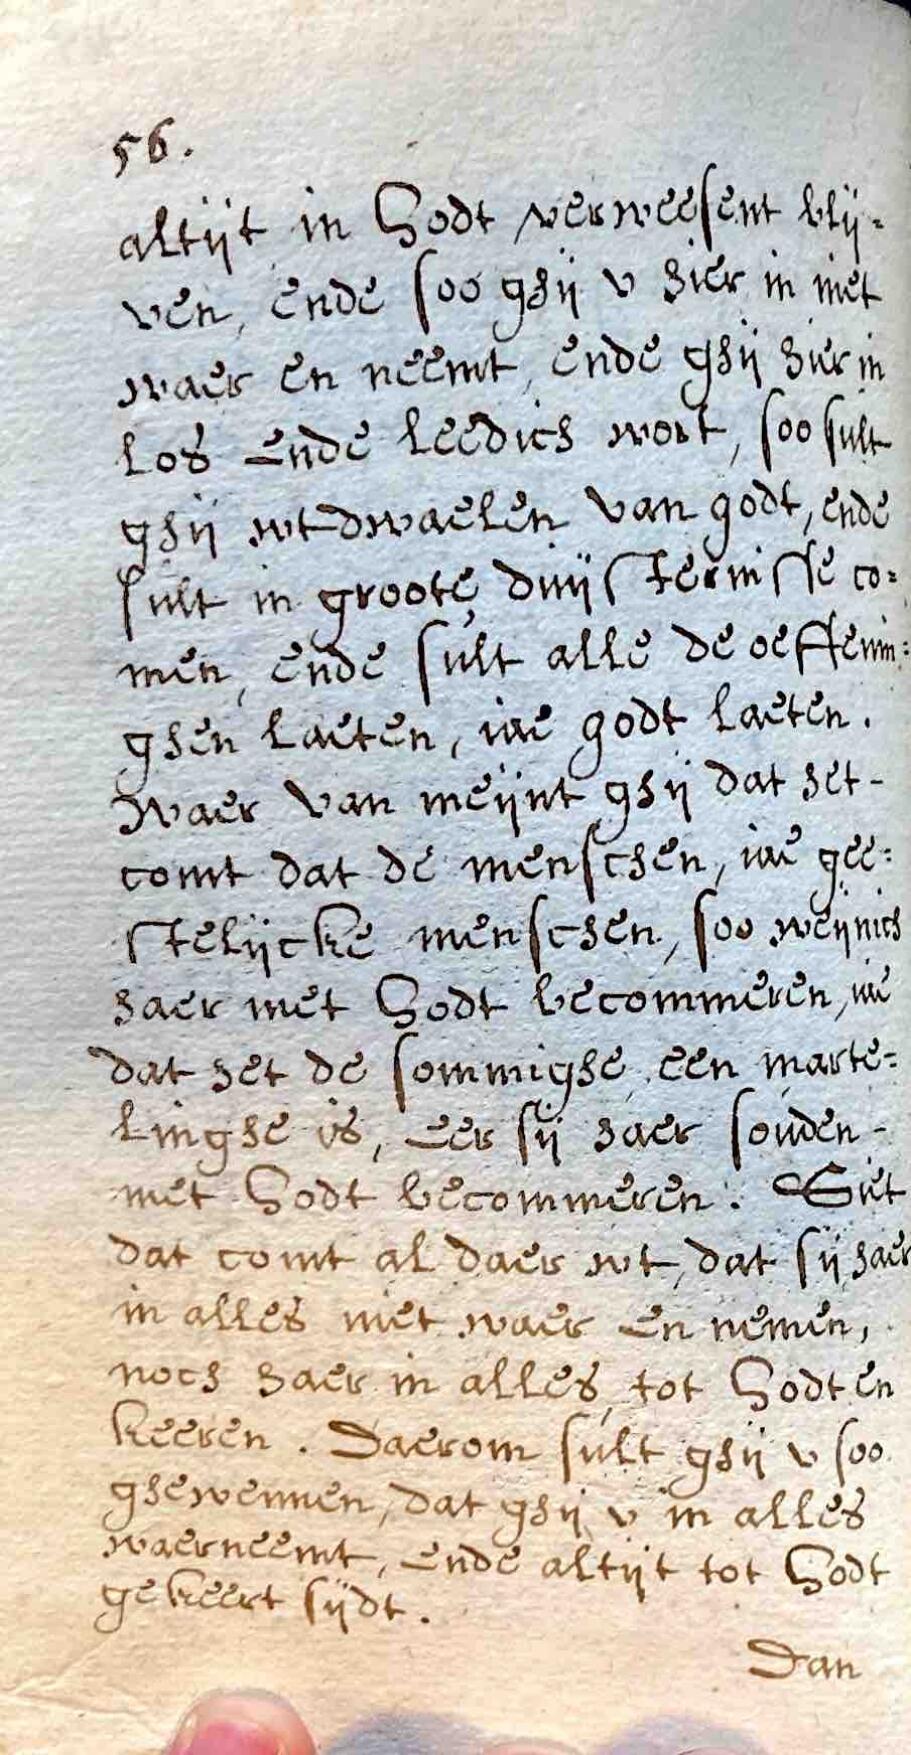 56.
altijt in Godt verweesent blij=
ven, ende soo ghij v hier in niet
waer en neemt, ende ghij hier in
los ende leedich wort, soo sult
ghij wtdwaelen van godt, ende
sult in groote duijsternisse co=
men, ende sult alle de oeffenin=
ghen laeten, iae godt laeten.
Waer van meijnt ghij dat het-
comt dat de menschen, iae gee=
stelijcke menschen, soo weijnich
haer met Godt becommeren, iae
dat het de sommighe een marte=
linghe is, eer sij haer souden-
met Godt becommeren. Siet
dat comt al daer wt, dat sij haer
in alles niet waer en nemen,
noch haer in alles tot Godt en
keeren. Daerom sult ghij v soo
ghewennen, dat ghij v in alles
waerneemt, ende altijt tot Godt
gekeert sijdt.
Dan